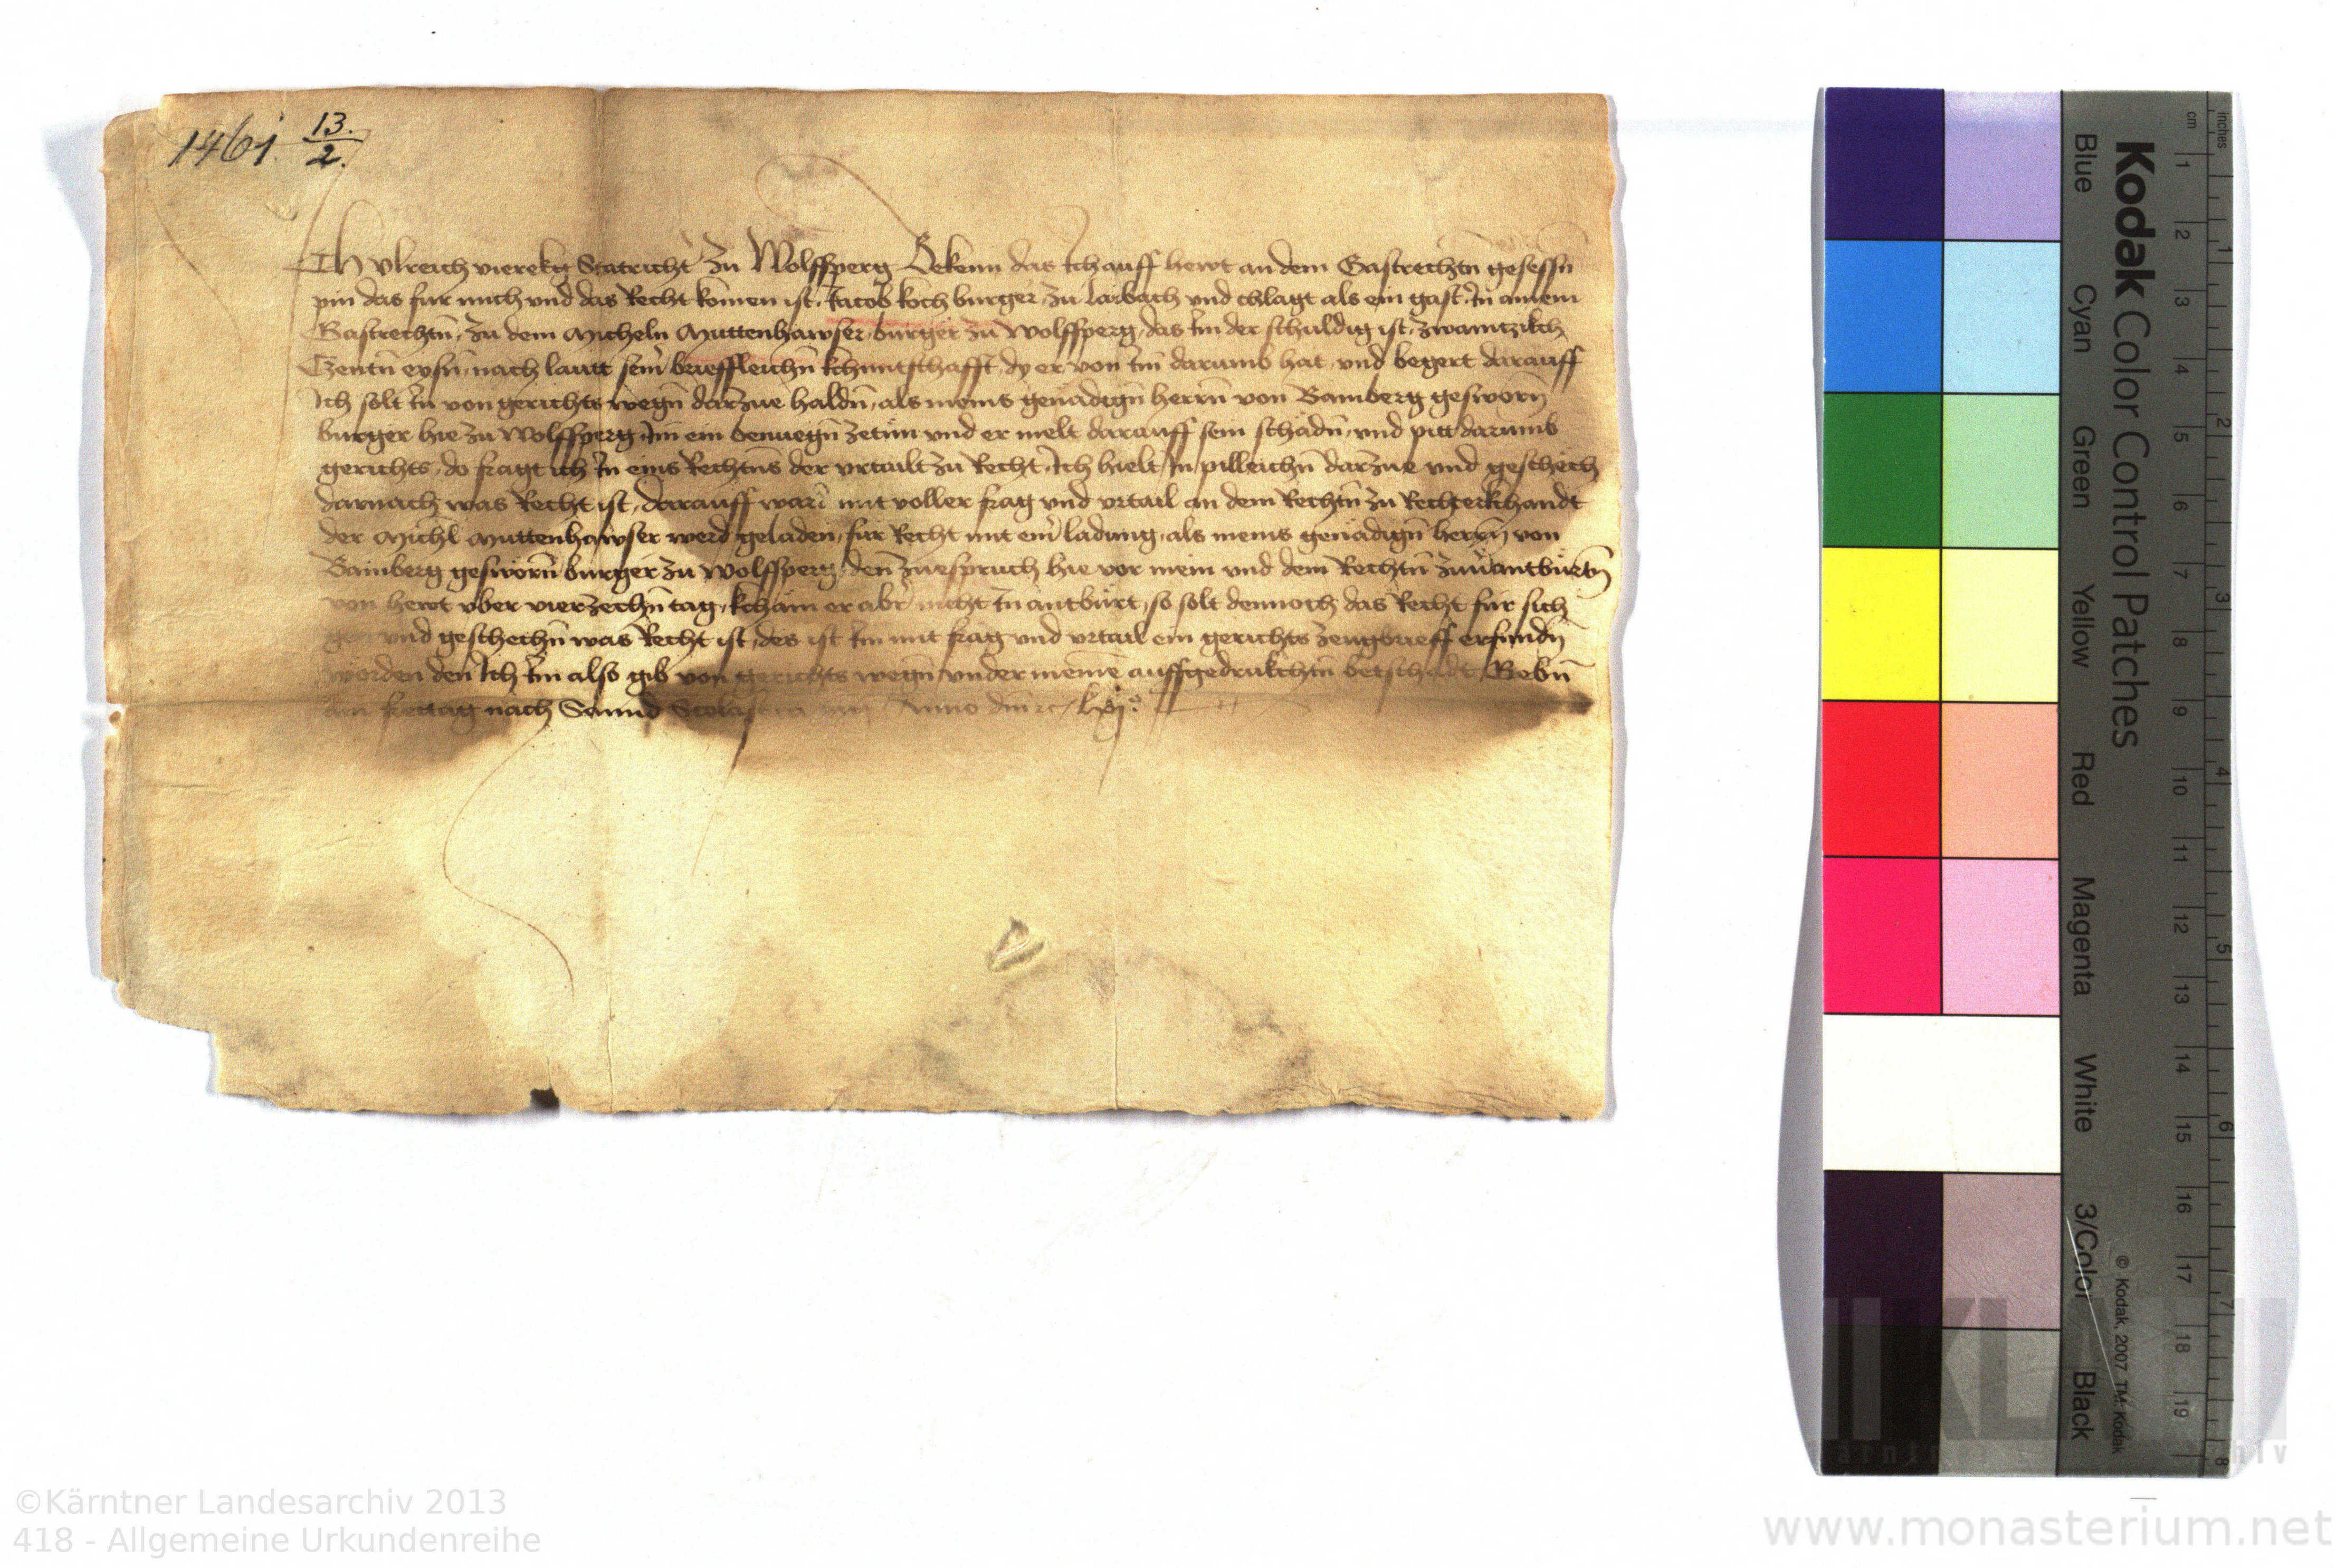 1461. 13./2.
Ich Vlreich vierekg Statricht̄ zu Wolffsperg Bekenn das Ich auff hewt an dem Gastrechtn̄ gesessn̄
pin das fur mich vnd das Recht komen ist Jacob koch burger zu laibach vnd chlagt als ein gast In ainem
Gastrechtn̄ zu dem Micheln Muttenhawser burger zu Wolffsperg das Im der schuldig ist zwaintzikch
Czentn̄ eysn̄ nach lautt seiñ briefflichn̄ kchuntschafft dy er von Im darumb hat vnd begert darauff
Ich solt In von gerichts wegn̄ darzue haldn̄ als meins genadign̄ herrn̄ von Bamberg gesworn̄
burger hie zu Wolffsperg Im ein benuegn̄ zetun vnd er melt darauff sein schadn̄ vnd pitt darumb
gerichts do fragt ich In eins Rechtns der vrtailt zu Recht Ich hielt In pilleichn̄ darzue vnd geschech
darnach was Recht ist darauff ward mit voller frag vnd vrtail an dem Rechtn̄ zu Recht erkhandt
der Michl Muttenhawser werd geladen fur Recht mit eiñ ladung als meins genadign̄ herrn̄ von
Bamberg gesworn̄ burger zu Wolffsperg den zuespruch hie vor mein vnd dem Rechtn̄ zuuantburtn̄
von hewt vber vierzechn̄ tag kchäm er ab̄ nicht In antburt so solt dennoch das Recht fur sich
gen vnd geschechn̄ was Recht ist des ist Im mit frag vnd vrtail ein gerichts zeugbrieff erfundn̄
worden den Ich Im also gib von gerichts wegn̄ vnder meinē auffgedrukchtn̄ betschadt Gebn̄
Am freitag nach Sannd Scolastica Anno dn̄i rc lxj°
Kodak Color Control Patches
Blue Cyan Green Yellow Red Magenta White 3/Color Black
© Kodak, 2007 TM: Kodak
cm 1 2 3 4 5 6 7 8 9 10 11 12 13 14 15 16 17 18 19
inches 1 2 3 4 5 6 7 8
©Kärntner Landesarchiv 2013
418 - Allgemeine Urkundenreihe
www.monasterium.net